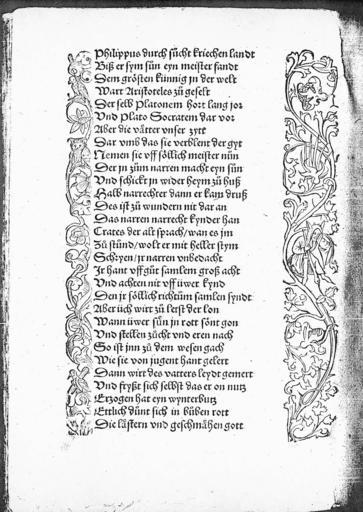 Philippus durch sücht kriechen landt
Biß er sym sün eyn meister fandt
Dem grösten künnig jn der welt
Wart Aristoteles zü geselt
Der selb Platonem hort lang jor
Vnd Plato Socratem dar vor
Aber die vätter vnser zytt
Dar vmb das sie verblent der gyt
Nemen sie vff söllich meister nün
Der jn züm narren macht eyn sün
Vnd schickt jn wider heym zü huß
Halb narrechter dann er kam druß
Des ist zü wundern nit dar an
Das narren narrecht kynder han
Crates der alt sprach / wan es jm
Zü stünd / wolt er mit heller stym
Schryen / jr narren vnbedacht
Ir hant vff güt samlem groß acht
Vnd achten nit vff üwer kynd
Den jr söllich richtüm samlen syndt
Aber üch wirt zü letst der lon
Wann üwer sün jn rott sönt gon
Vnd stellen zücht vnd eren nach
So ist jnn zü dem wesen gach
Wie sie von jugent hant gelert
Dann wirt des vatters leydt gemert
Vnd fryßt sich selbst das er on nutz
Erzogen hat eyn wynterbutz
Ettlich dünt sich in büben rott
Die lästern vnd geschmähen gott